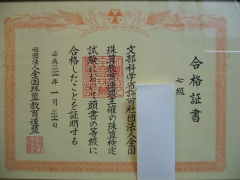 合格証書
七級
文部科学省許可社団法人全国
珠算教育連盟主催の珠算検定
試験において頭書の等級に
合格したことを証明する
平成二十一年一月二十日
社団法人全国珠算教育連盟